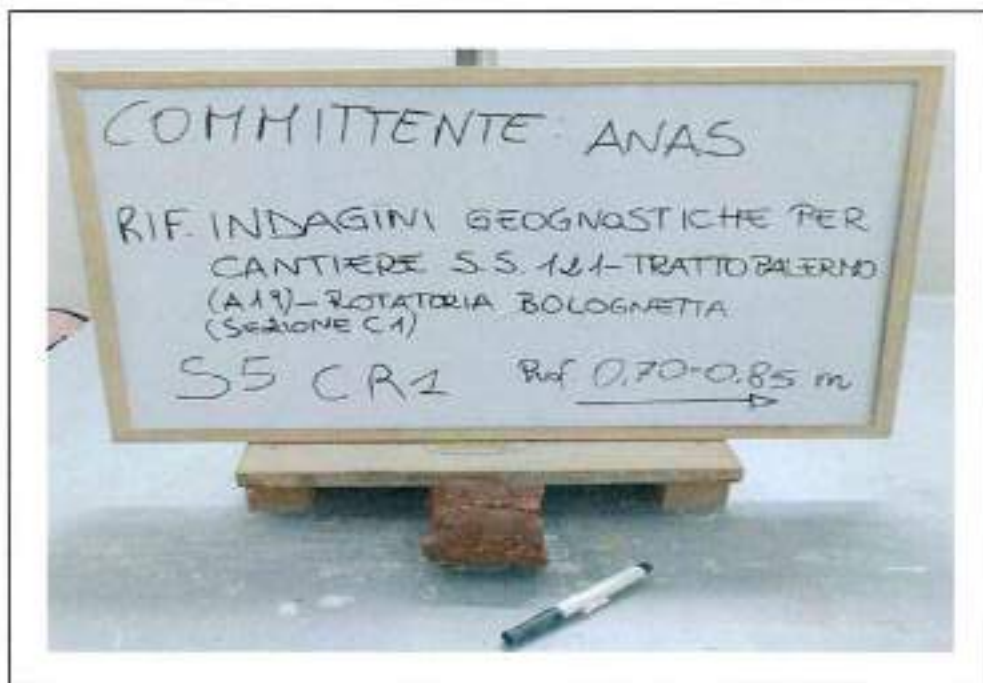 COMMITTENTE: ANAS
RIF. INDAGINI GEOGNOSTICHE PER
CANTIERE S.S. 121-TRATTO PALERMO
(A19)-ROTATORIA BOLOGNETTA
(SEZIONE C1)
S5 CR1 Prof. 0,70-0,85 m